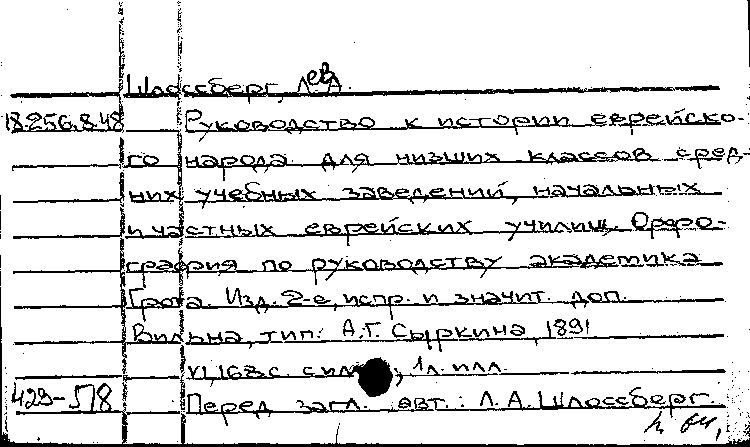 Шлоссберг, Лев А.
18.256.8.48 Руководство к истории еврейско-
го народа для низших классов сред-
них учебных заведений, начальных
и частных еврейских училищ. Орфо-
графия по руководству академика
Грота. Изд. 2-е, испр. и значит. доп.
Вильна, тип: А.Г. Сыркина, 1891
VI, 168 с. с илл; 1 л. илл.
429-578 Перед загл. авт.: Л.А. Шлоссберг.